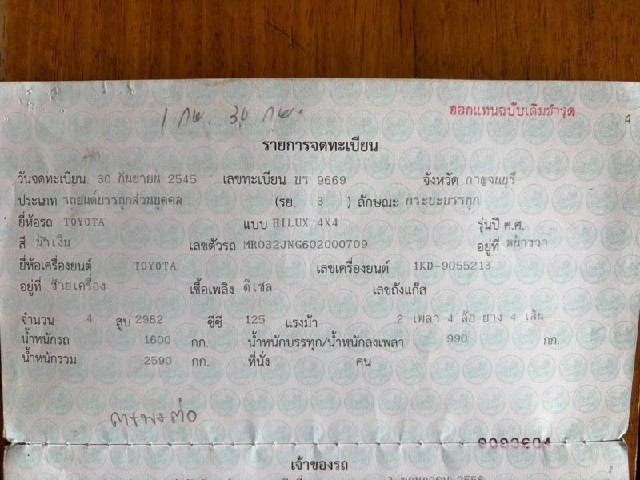 1 กพ. 30 กย.
ออกแทนฉบับเดิมชำรุด
รายการจดทะเบียน
วันจดทะเบียน 30 กันยายน 2545 เลขทะเบียน 9669 จังหวัด กาญจนบุรี
ประเภท รถยนต์บรรทุกส่วนบุคคล (รย. 3 ) ลักษณะ กระบะบรรทุก
ยี่ห้อรถ TOYOTA แบบ HILUX 4X4 รุ่นปี ค.ศ.
สี น้ำเงิน เลขตัวรถ MR032JNG602000709 อยู่ที่ หน้าขวา
ยี่ห้อเครื่องยนต์ TOYOTA เลขเครื่องยนต์ 1KD-9055213
อยู่ที่ ซ้ายเครื่อง เชื้อเพลิง ดีเซล เลขถังแก๊ส
จำนวน 4 สูบ 2982 ซีซี 125 แรงม้า 2 เพลา 4 ล้อ ยาง 4 เส้น
น้ำหนักรถ 1600 กก. น้ำหนักบรรทุก/น้ำหนักลงเพลา 990 กก.
น้ำหนักรวม 2590 กก. ที่นั่ง คน
เจ้าของรถ